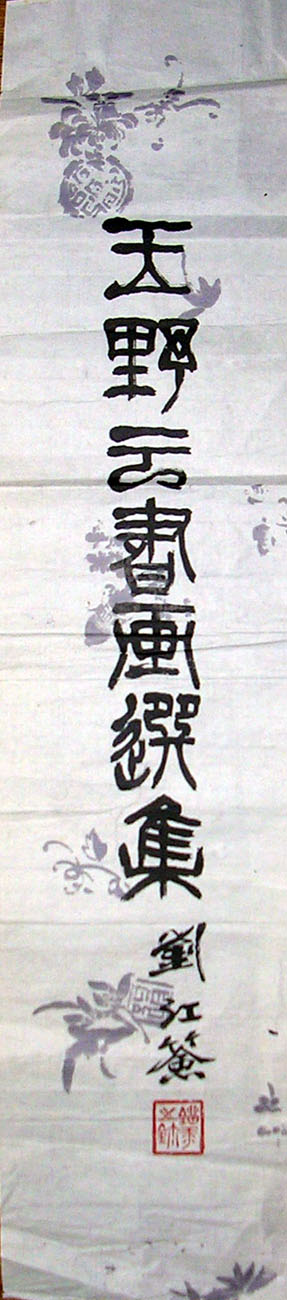 野云書画選集
劉江簽